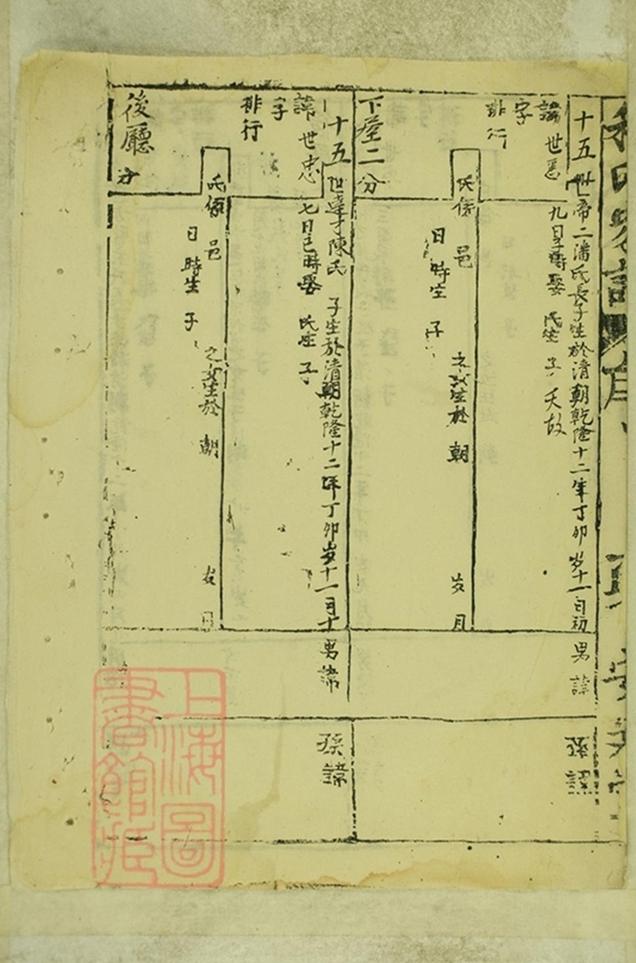 十五世帝二潘氏長子生於清朝乾隆十二年丁卯歲十一月初
九日 時娶 氏生 子 夭故
諱世
字
排行
男諱
孫諱
氏係 邑 之女生於 朝 歲 月
日 時生 子
下座二分
十五世達才陳氏 子生於清朝乾隆十二年丁卯歲十一月十
七日巳時娶 氏生 子
諱世忠
字
排行
男諱
孫諱
氏係 邑 之女生於 朝 歲 月
日 時生 子
後廳分
上海圖
書館藏